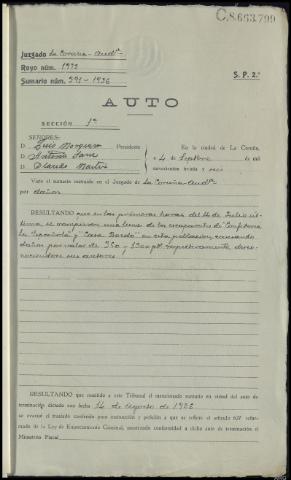 C.8.663.799
Juzgado La Coruña-Audª
Royo núm. 1973
Sumario núm. 391-1936
S. P. 2.ª
AUTO
SECCIÓN 1ª
SEÑORES:
D. Luis Presidente
D. Antonio
D. Claudio
En la ciudad de La Coruña,
a 4 de Septbre de mil
novecientos treinta y seis
Visto el sumario instruído en el Juzgado de La Coruña-Audª
por daños
RESULTANDO que en las primeras horas del de Julio úl-
timo, se rompieron una luna de los escaparates de "Confitería
La Española" y "Casa en esta población, causando
daños por valor de 750 y ptas respectivamente, desco-
nociéndose sus autores
RESULTANDO que remitido a este Tribunal el mencionado sumario en virtud del auto de
terminación dictado con fecha 14 de Agosto de 1936
se evacuó el traslado conferido para instrucción y petición a que se refiere el artículo 627 refor-
mado de la Ley de Enjuiciamiento Criminal, mostrando conformidad a dicho auto de terminación el
Ministerio Fiscal